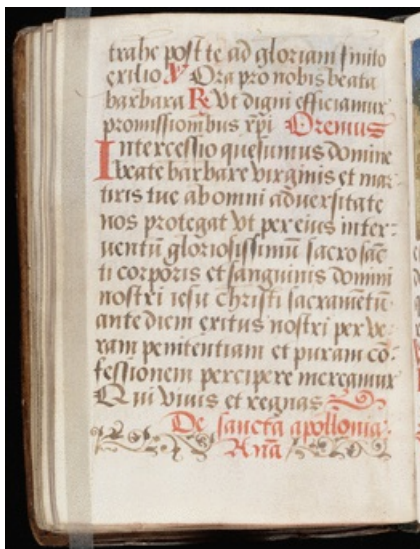 trahe post te ad gloriam finito
exilio V Ora pro nobis beata
barbara R Vt digni efficiamur
promissionibus xpi Oremus
Intercessio quesumus domine
beate barbare virginis et mar
tiris tue ab omni aduersitate
nos protegat vt per eius inter-
uentū gloriosissimū sacrosāc
ti corporis et sanguinis domini
nostri iesu christi sacramētū
ante diem exitus nostri per ve-
ram penitentiam et puram cō-
fessionem percipere mereamur
Qui viuis et regnas
De sancta apollonia.
Anā